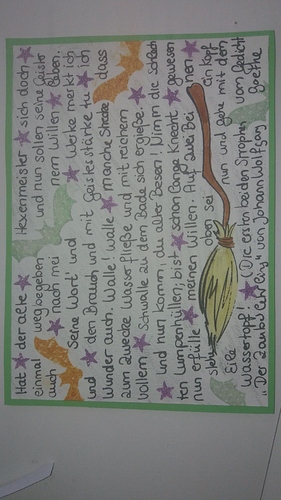 Hat der alte Hexenmeister sich doch
einmal wegbegeben und nun sollen seine Geister
auch nach mei nem Willen leben.
Seine Wort' und Werke merkt ich
und den Brauch und mit geistesstärke tu ich
Wunder auch. Walle! Walle manche Strecke dass
zum Zwecke Wasser fließe und mit reichem
vollem Schwalle zu dem Bade sich ergieße.
und nun komm, du alter Besen! Nimm die Schlech
ten Lumpenhüllen; bist schon lange Knecht gewesen
nun erfülle meinen Willen. Auf zwei Bei nen
stehe oben sei ein Kopf
Eile nun und gehe mit dem
Wassertopf! (Die ersten beiden Strophen vom Gedicht
„Der Zauberlehrling" von Johann Wolfgang Goethe